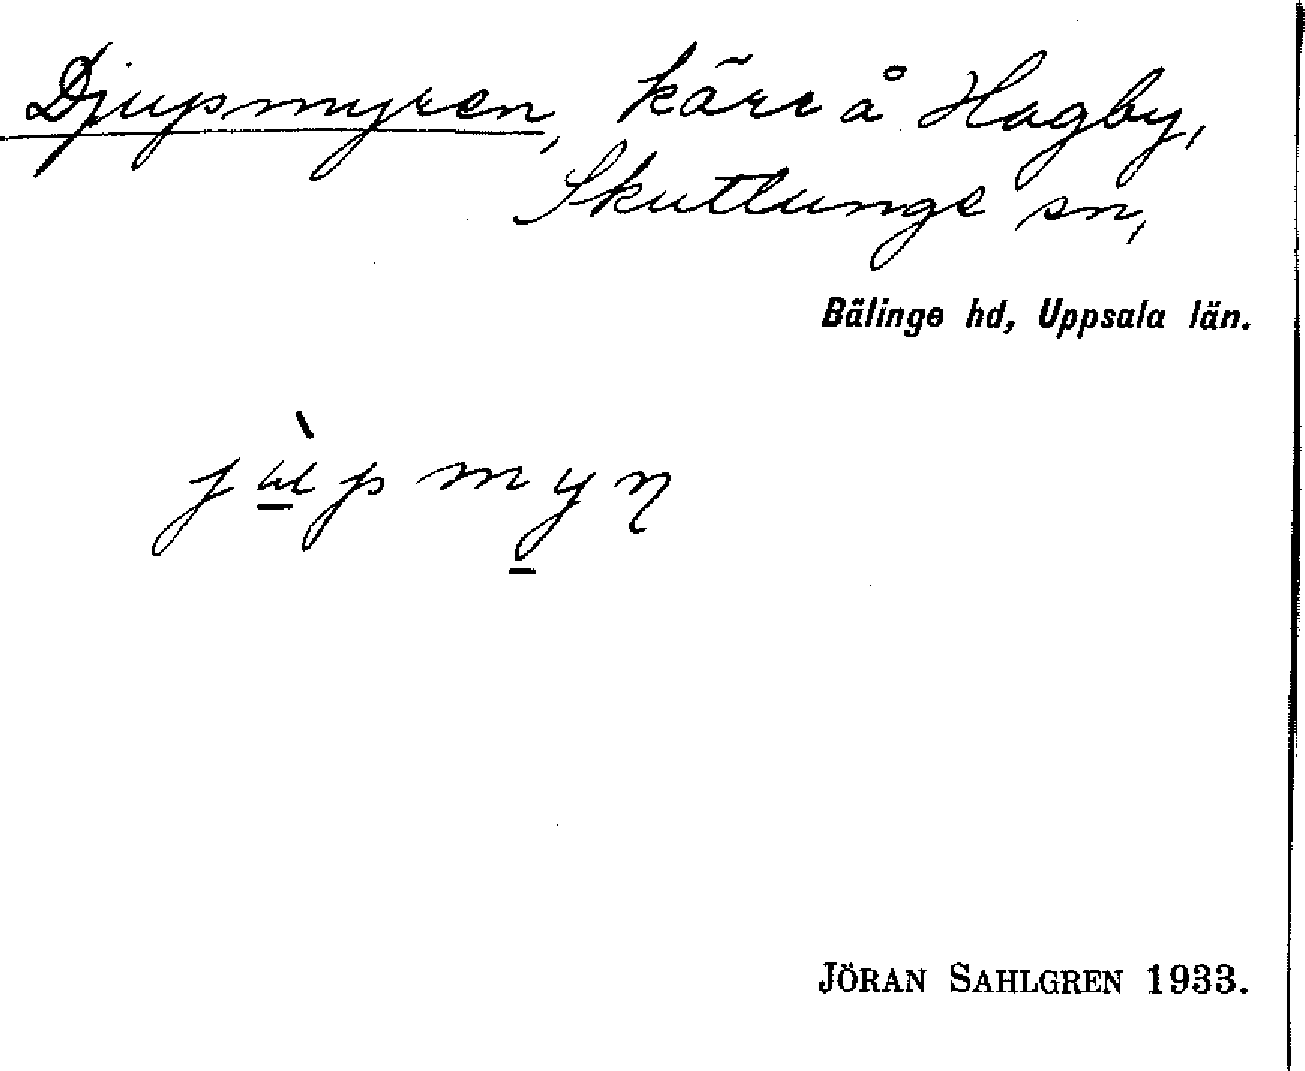 Djupmyren, kärr å Hagby,
Skuttunge sn,
Bälinge hd, Uppsala län.
jù̲pmy̲ɳ
JÖRAN SAHLGREN 1933.